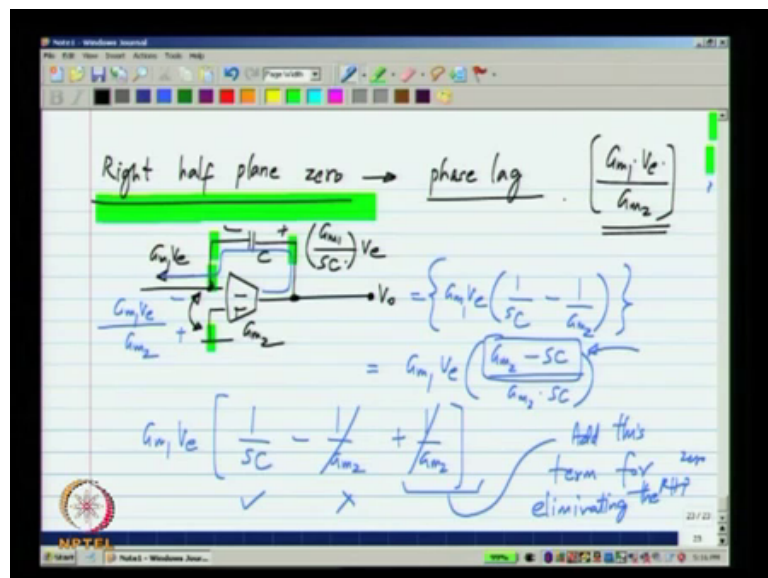 Note1 - Windows Journal
File Edit View Insert Actions Tools Help
Page Width
B I
Right half plane zero → phase lag . [Gm1 · Ve · / Gm2]
Gm1 Ve
- +
C
(Gm1 / SC ·) Ve
Gm1 Ve / Gm2
- +
Gm2
V0 = { Gm1 Ve ( 1/SC - 1/Gm2 ) }
= Gm1 Ve ( Gm2 - SC / Gm2 · SC )
Gm1 Ve [ 1/SC - 1/Gm2 + 1/Gm2 ]
✓ X
Add this
term for
eliminating the RHP zero
23/23
25
NPTEL
Start
Note1 - Windows Jour...
99%
5:16 PM